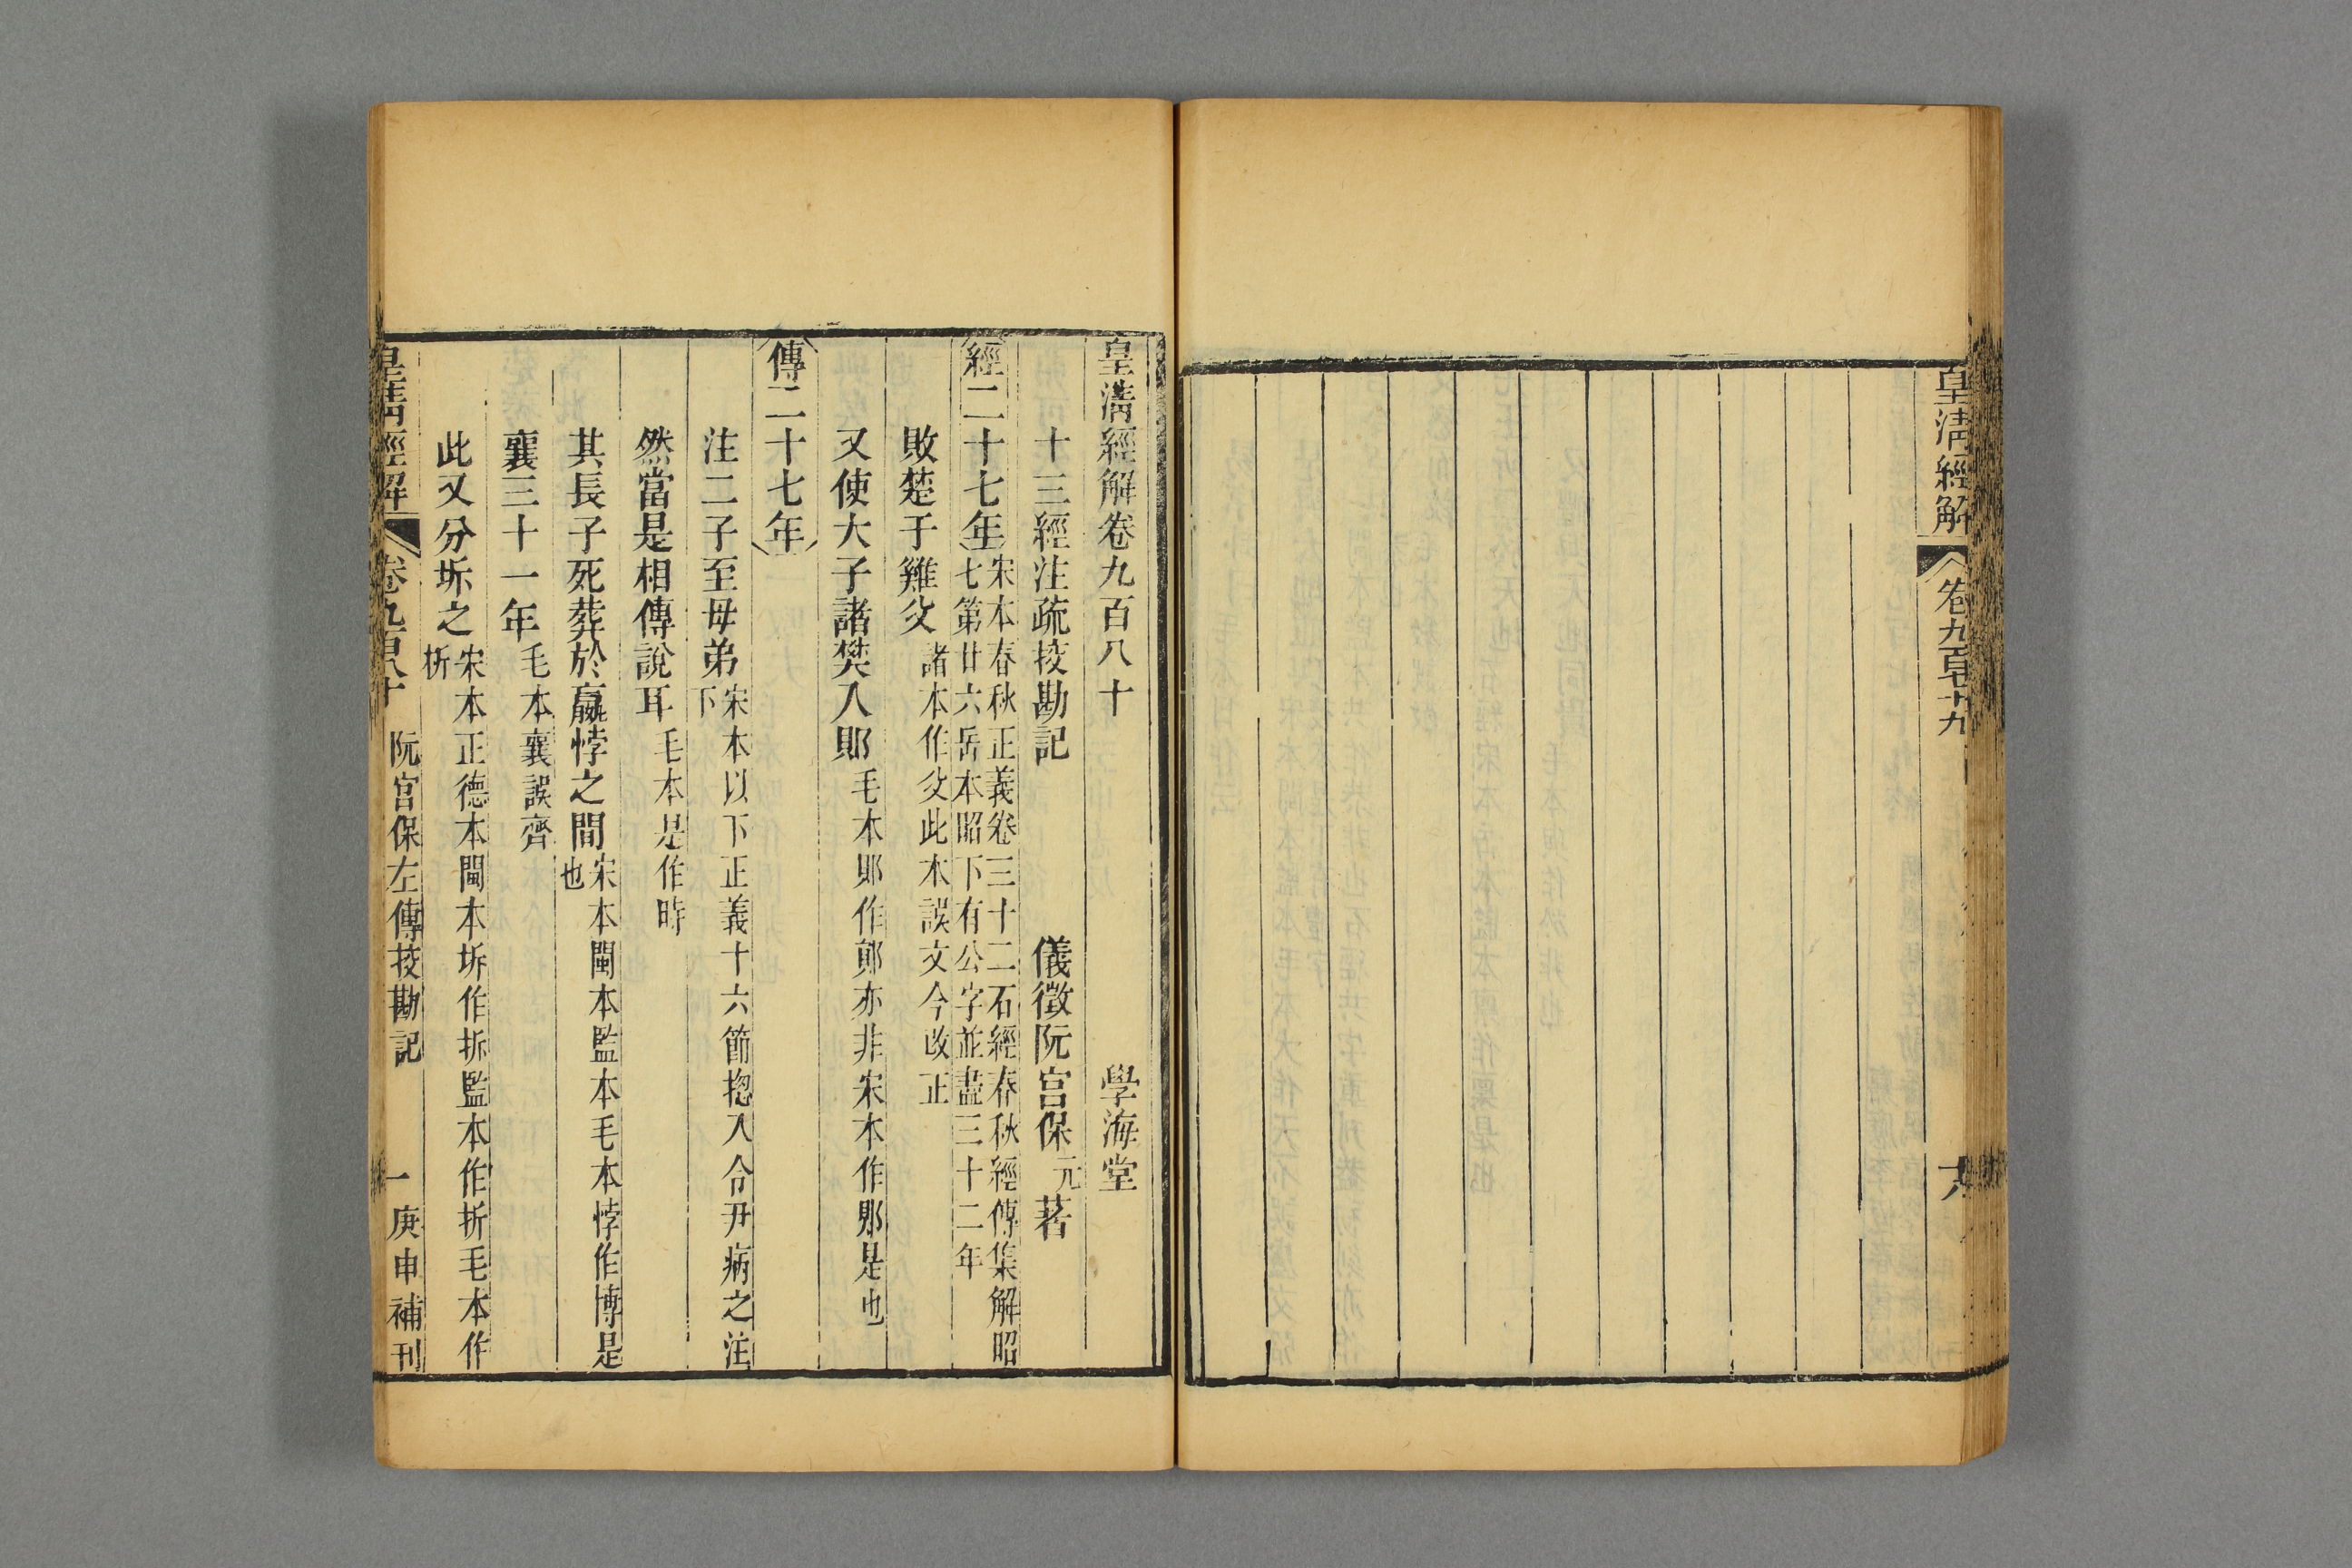 皇清經解
卷九百七十九
皇清經解卷九百八十 學海堂
十三經注疏挍勘記 儀徵阮宮保元著
經二十七年宋本春秋正義卷三十二石經春秋經傳集解昭
七第廿六岳本昭下有公字並盡三十二年
敗楚于雞父諸本作父此本誤文今改正
又使大子諸樊入郹毛本郹作鄓亦非宋本作郹是也
傳二十七年
注二子至母弟宋本以下正義十六節揔入令尹病之注
下
然當是相傳說耳毛本是作時
其長子死葬於嬴悖之間宋本閩本監本毛本悖作博是
也
襄三十一年毛本襄誤齊
此又分坼之宋本正德本閩本坼作拆監本作折毛本作
析
皇清經解 卷九百八十 阮宮保左傳挍勘記 一 庚申補刊